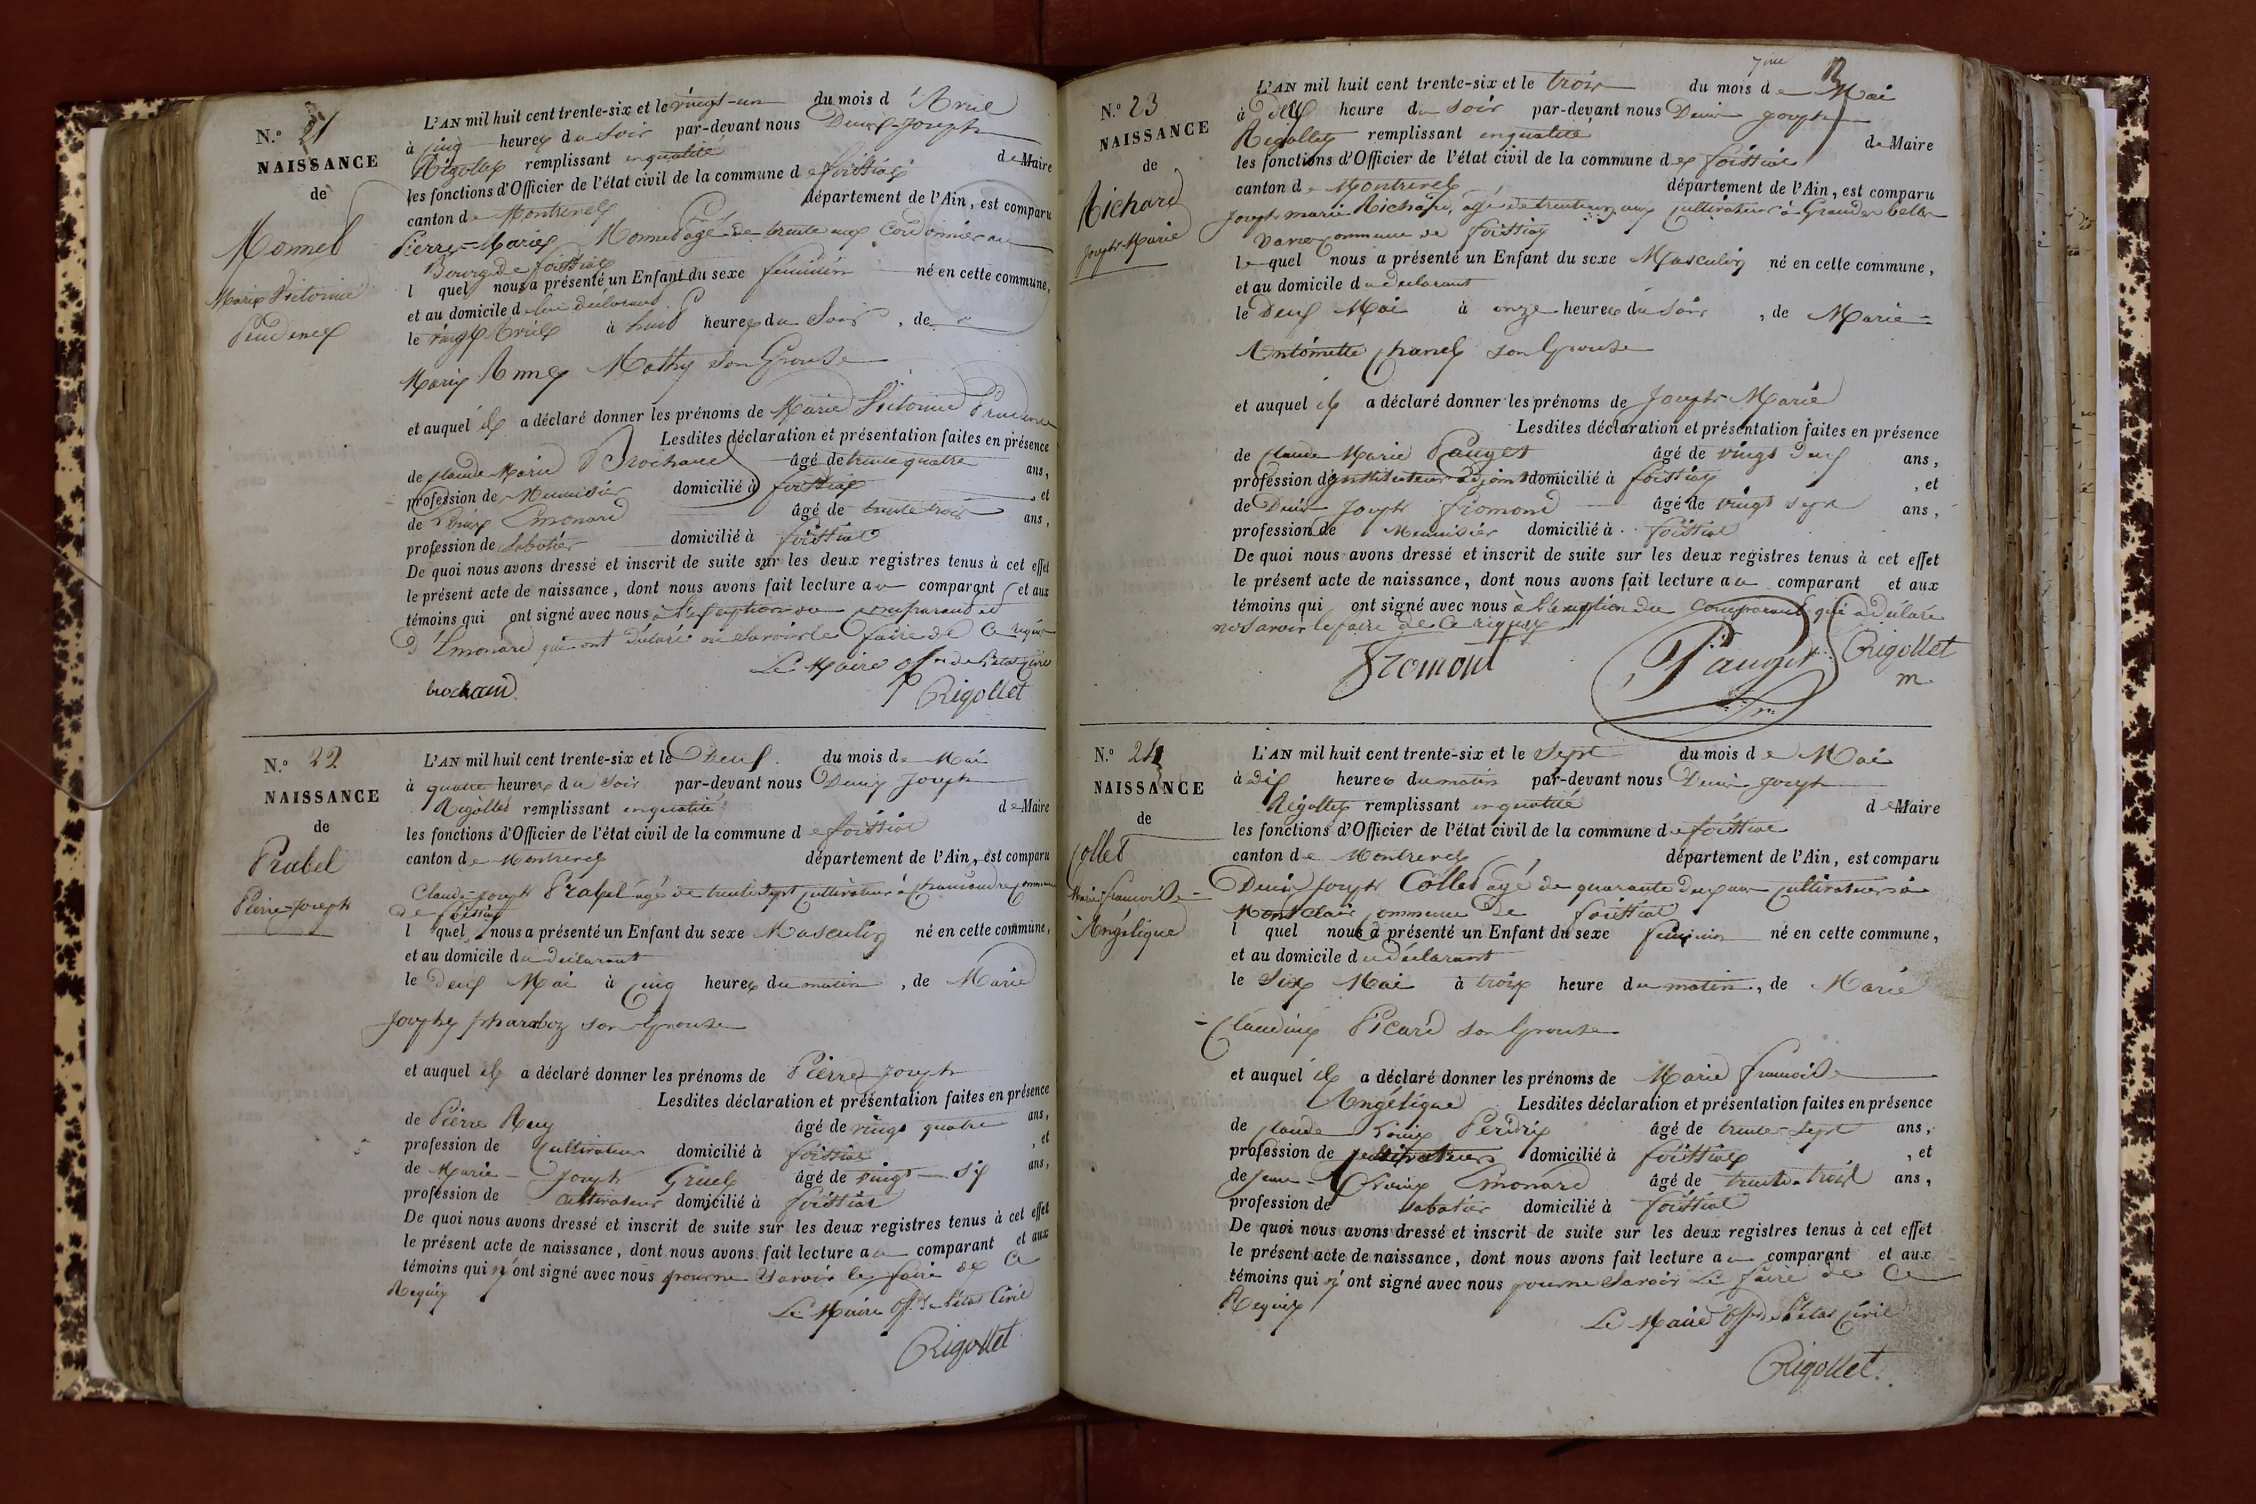 N.° 21
NAISSANCE
de
Monnet
Marie Victoire
Prudence
L'AN mil huit cent trente-six et le vingt-un du mois d'Avril
à cinq heures du soir par-devant nous Denis Joseph
Rigollet remplissant en qualité de Maire
les fonctions d'Officier de l'état civil de la commune de foissiat
canton de Montrevel département de l'Ain, est comparu
Pierre-Marie Monnet âgé de trente ans Cordonnier au
Bourg de foissiat
l quel nous a présenté un Enfant du sexe féminin né en cette commune,
et au domicile de lui déclarant
le vingt Avril à huit heures du Soir, de
Marie Anne Mathy son Epouse
et auquel il a déclaré donner les prénoms de Marie Victoire Prudence
Lesdites déclaration et présentation faites en présence
de Claude Marie Brochand âgé de trente quatre ans,
profession de Menuisier domicilié à foissiat, et
de Emonard âgé de trente trois ans,
profession de Sabotier domicilié à foissiat
De quoi nous avons dressé et inscrit de suite sur les deux registres tenus à cet effet
le présent acte de naissance, dont nous avons fait lecture au comparant et aux
témoins qui ont signé avec nous à l'exception du comparant et
d'Emonard qui ont déclaré ne savoir le faire de ce requis
Le Maire off. de l'état civil
brochand
Rigollet
N.° 22
NAISSANCE
de
Prabel
Pierre-Joseph
L'AN mil huit cent trente-six et le Deux du mois de Mai
à quatre heures du soir par-devant nous Denis Joseph
Rigollet remplissant en qualité de Maire
les fonctions d'Officier de l'état civil de la commune de foissiat
canton de Montrevel département de l'Ain, est comparu
Claude-Joseph Prabel âgé de trente sept cultivateur à commune
de foissiat
l quel nous a présenté un Enfant du sexe Masculin né en cette commune,
et au domicile du déclarant
le deux Mai à cinq heures du matin, de Marie
Josephe son Epouse
et auquel il a déclaré donner les prénoms de Pierre Joseph
Lesdites déclaration et présentation faites en présence
de Pierre Rey âgé de vingt quatre ans,
profession de Cultivateur domicilié à foissiat, et
de Marie-Joseph Gruel âgé de vingt-six ans,
profession de Cultivateur domicilié à foissiat
De quoi nous avons dressé et inscrit de suite sur les deux registres tenus à cet effet
le présent acte de naissance, dont nous avons fait lecture au comparant et aux
témoins qui n'ont signé avec nous pour ne savoir le faire de ce
Requis
Le Maire off. de l'état Civil
Rigollet
N.° 23
NAISSANCE
de
Richard
Joseph-Marie
L'AN mil huit cent trente-six et le trois du mois de Mai
à heure du soir par-devant nous Denis Joseph
Rigollet remplissant en qualité de Maire
les fonctions d'Officier de l'état civil de la commune de foissiat
canton de Montrevel département de l'Ain, est comparu
Joseph marie Richard, âgé de ans cultivateur à Grande belle
commune de foissiat
le quel nous a présenté un Enfant du sexe Masculin né en cette commune,
et au domicile du déclarant
le Deux Mai à onze heures du Soir, de Marie-
Antoinette Chanel son Epouse
et auquel il a déclaré donner les prénoms de Joseph Marie
Lesdites déclaration et présentation faites en présence
de Claude Marie Pauget âgé de vingt deux ans,
profession d'Instituteur adjoint domicilié à foissiat, et
de Denis Joseph fromont âgé de vingt sept ans,
profession de Menuisier domicilié à foissiat
De quoi nous avons dressé et inscrit de suite sur les deux registres tenus à cet effet
le présent acte de naissance, dont nous avons fait lecture au comparant et aux
témoins qui ont signé avec nous à l'exception du Comparant qui a déclaré
ne savoir le faire de ce requis
Fromont Pauget Rigollet
m
N.° 24
NAISSANCE
de
Collet
Marie-francoise-
Angélique
L'AN mil huit cent trente-six et le Sept du mois de Mai
à Dix heures du matin par-devant nous Denis Joseph
Rigollet remplissant en qualité de Maire
les fonctions d'Officier de l'état civil de la commune de foissiat
canton de Montrevel département de l'Ain, est comparu
Denis Joseph Collet âgé de quarante deux ans cultivateur à
Montclair commune de foissiat
l quel nous a présenté un Enfant du sexe féminin né en cette commune,
et au domicile du déclarant
le Six Mai à trois heure du matin, de Marie
-Claudine Picard son Epouse
et auquel il a déclaré donner les prénoms de Marie francoise
Angélique Lesdites déclaration et présentation faites en présence
de Claude Louis Perdrix âgé de trente-sept ans,
profession de cultivateur domicilié à foissiat, et
de Emonard âgé de trente-trois ans,
profession de Sabotier domicilié à foissiat
De quoi nous avons dressé et inscrit de suite sur les deux registres tenus à cet effet
le présent acte de naissance, dont nous avons fait lecture au comparant et aux
témoins qui n'ont signé avec nous pour ne Savoir Le faire de Ce
Requis
Le Maire off. de l'état Civil
Rigollet